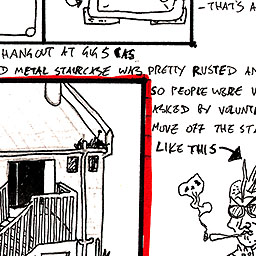 - THAT'S A
HANGOUT AT GIGS (AS
D METAL STAIRCASE WAS PRETTY RUSTED AN
SO PEOPLE WERE V
ASKED BY VOLUNT
MOVE OFF THE STA
LIKE THIS